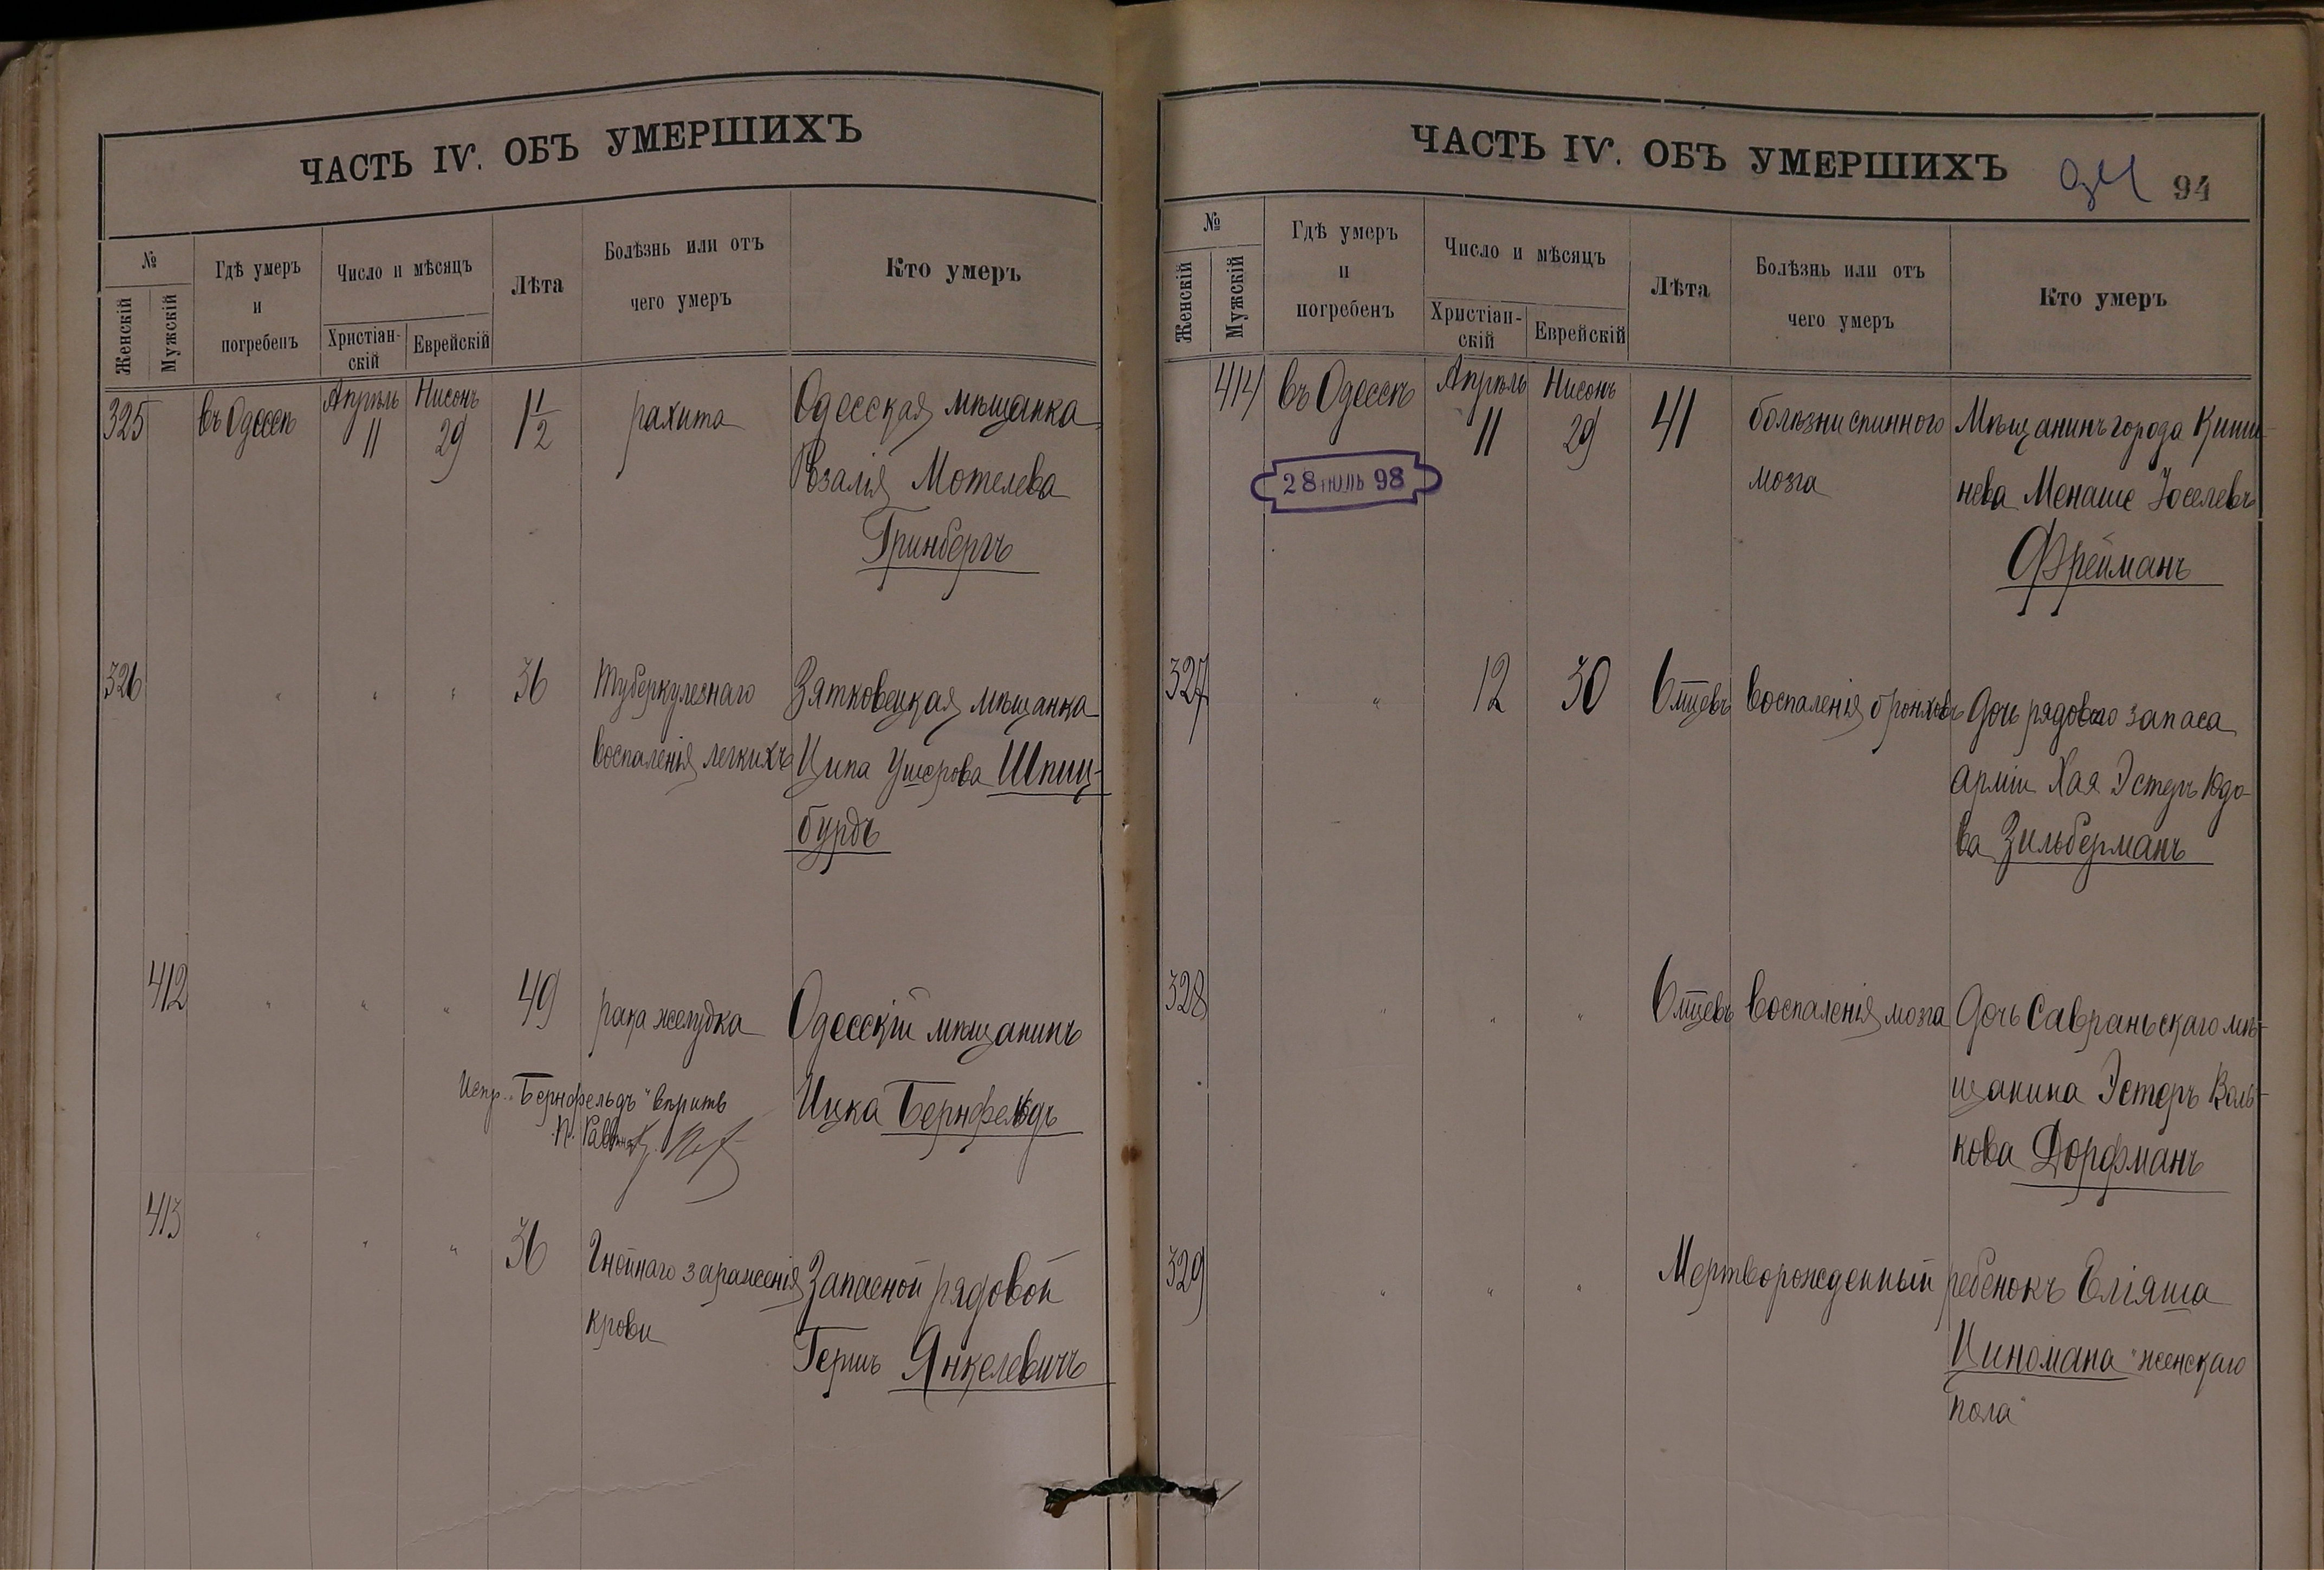 ЧАСТЬ IV. ОБЪ УМЕРШИХЪ
№
Женскій
Мужскій
Гдѣ умеръ
и
погребенъ
Число и мѣсяцъ
Христіан-
скій
Еврейскій
Лѣта
Болѣзнь или отъ
чего умеръ
Кто умеръ
325 въ Одессѣ Апрѣль 11 Нисонъ 29 1 1/2 рахита Одесская мѣщанка
Розалія Мотелева
Гринбергъ
326 " " " 36 Туберкулезнаго Зятковецкая мѣщанка
воспаленія легкихъ Ципа Ушерова Шпиц-
бурдъ
412 " " " 49 рака желудка Одесскій мѣщанинъ
Испр. "Бернфельдъ" вѣрить Ицка Бернфельдъ
413 " " " 36 Гнойнаго зараженія Запасной рядовой
крови Гершъ Янкелевичъ
ЧАСТЬ IV. ОБЪ УМЕРШИХЪ
94 94
№
Женскій
Мужскій
Гдѣ умеръ
и
погребенъ
Число и мѣсяцъ
Христіан-
скій
Еврейскій
Лѣта
Болѣзнь или отъ
чего умеръ
Кто умеръ
414 въ Одессѣ Апрѣль 11 Нисонъ 29 41 болѣзни спинного Мѣщанинъ города Киши-
28 ІЮЛЬ 98 мозга нева Менаше Іоселевъ
Фрейманъ
327 " 12 30 6 мцевъ воспаленія бронховъ Дочь рядового запаса
арміи Хая Эстеръ Юдо-
ва Зильберманъ
328 " " " 6 мцевъ воспаленія мозга Дочь Савраньскаго мѣ-
щанина Эстеръ Воль-
кова Дорфманъ
329 " " " Мертворожденный ребенокъ Еліяша
Циномана "женскаго
пола"